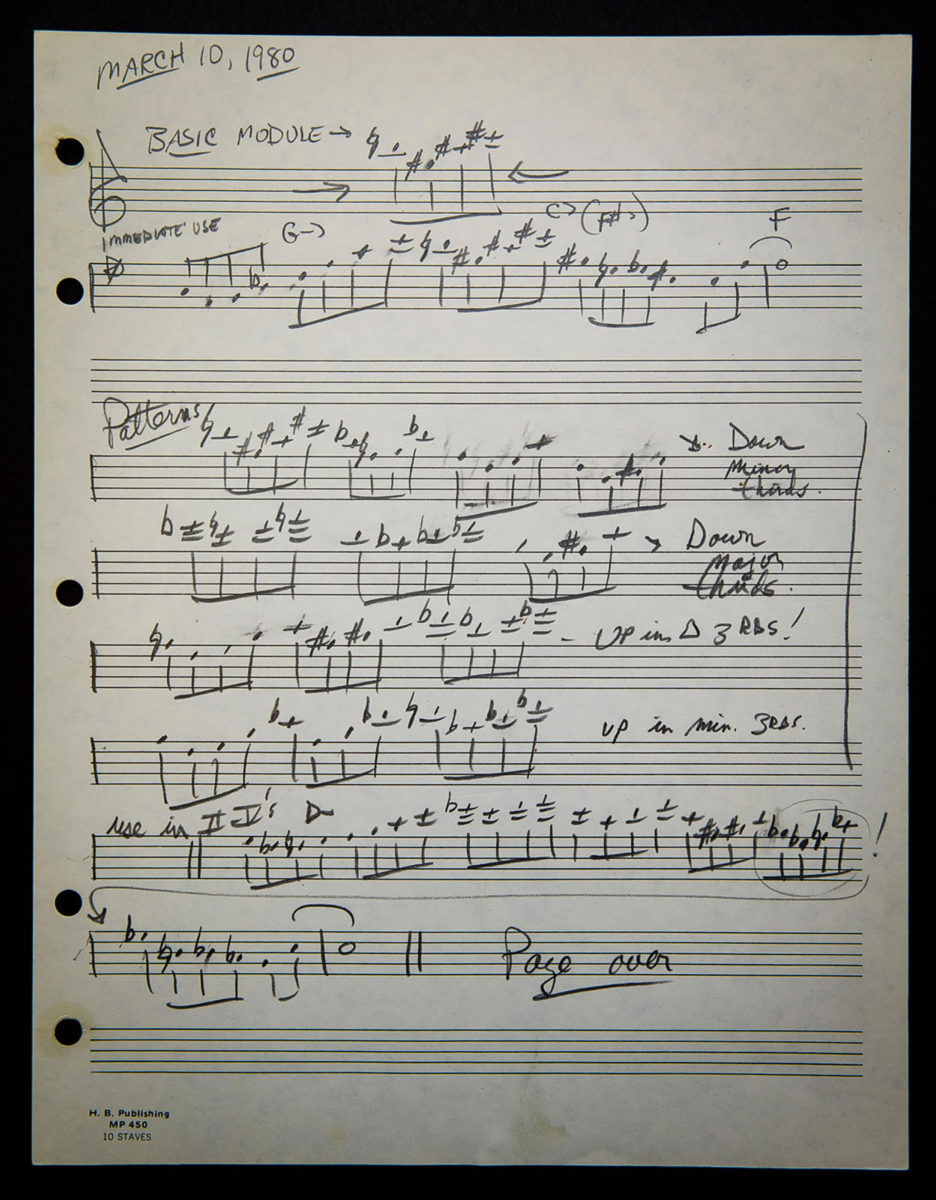 MARCH 10, 1980
BASIC MODULE →
IMMEDIATE USE
G-> C> (F#>) F
Patterns
Down
Minor
thirds.
Down
Major
thirds.
UP in Δ 3RDS!
UP in min. 3RDS.
use in II V's D- !
Page over
H. B. Publishing
MP 450
10 STAVES